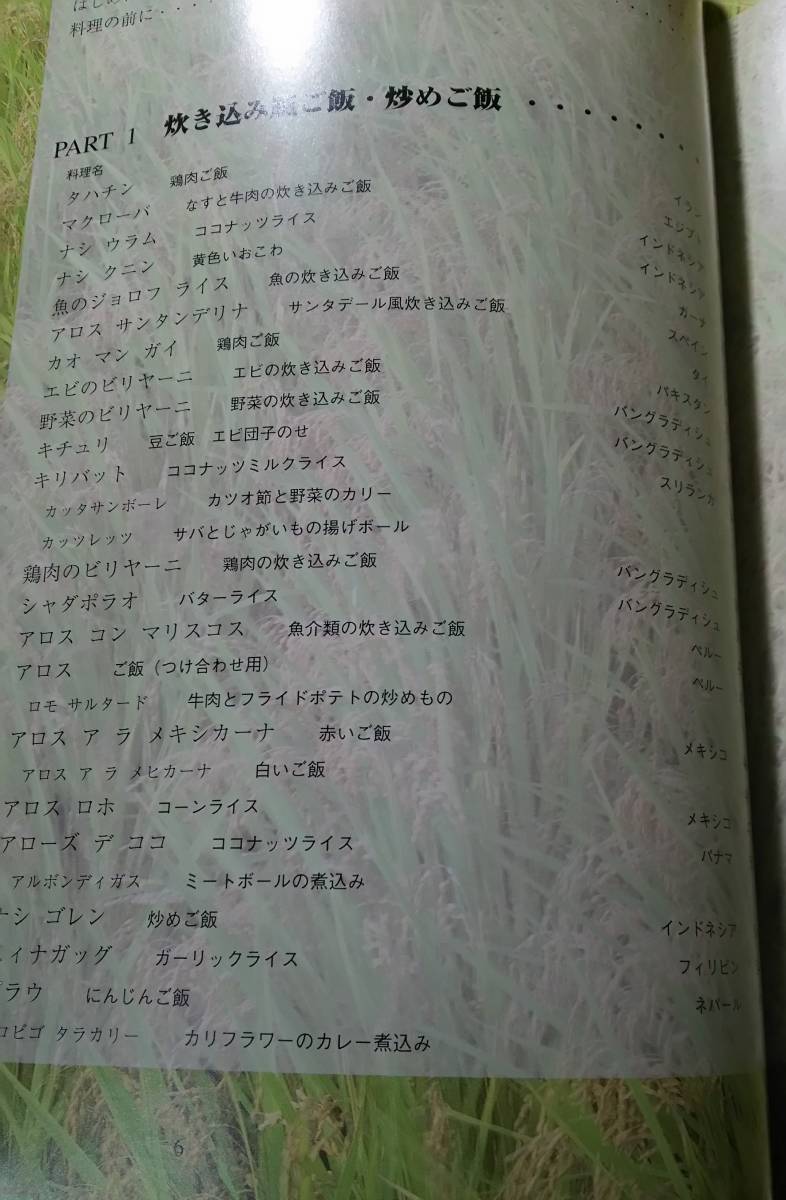 はじめ
料理の前に・・・
PART 1 炊き込みご飯・炒めご飯 ・・・・・・・・
料理名
タハチン 鶏肉ご飯 イラン
マクローバ なすと牛肉の炊き込みご飯 エジプト
ナシ ウラム ココナッツライス インドネシア
ナシ クニン 黄色いおこわ インドネシア
魚のジョロフ ライス 魚の炊き込みご飯 ガーナ
アロス サンタンデリナ サンタデール風炊き込みご飯 スペイン
カオ マン ガイ 鶏肉ご飯 タイ
エビのビリヤーニ エビの炊き込みご飯 パキスタン
野菜のビリヤーニ 野菜の炊き込みご飯 バングラディシュ
キチュリ 豆ご飯 エビ団子のせ バングラディシュ
キリバット ココナッツミルクライス スリランカ
カッタサンボーレ カツオ節と野菜のカリー
カッツレッツ サバとじゃがいもの揚げボール
鶏肉のビリヤーニ 鶏肉の炊き込みご飯 バングラディシュ
シャダポラオ バターライス バングラディシュ
アロス コン マリスコス 魚介類の炊き込みご飯 ペルー
アロス ご飯（つけ合わせ用） ペルー
ロモ サルタード 牛肉とフライドポテトの炒めもの
アロス ア ラ メキシカーナ 赤いご飯 メキシコ
アロス ア ラ メヒカーナ 白いご飯
アロス ロホ コーンライス メキシコ
アローズ デ ココ ココナッツライス パナマ
アルボンディガス ミートボールの煮込み
ナシ ゴレン 炒めご飯 インドネシア
ィナガッグ ガーリックライス フィリピン
プラウ にんじんご飯 ネパール
コビゴ タラカリー カリフラワーのカレー煮込み
6